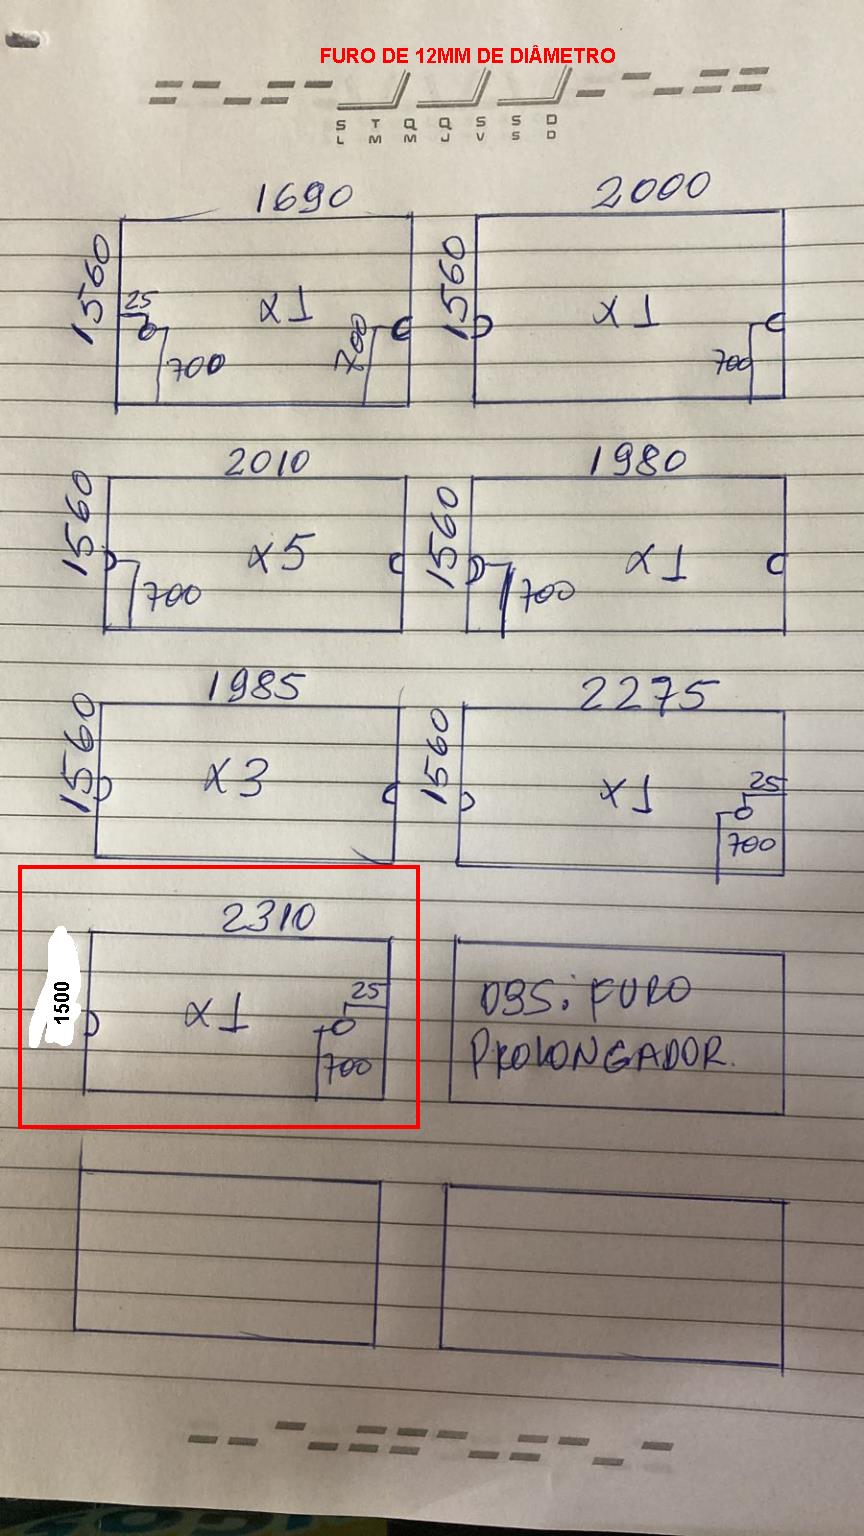 FURO DE 12MM DE DIÂMETRO
S T Q Q S S D
L M M J V S D
1690
1560
25
x1
700
700
2000
1560
x1
700
2010
1560
x5
700
1980
1560
x1
700
1985
1560
x3
2275
1560
x1
25
700
2310
1500
x1
25
700
OBS: FURO
PROLONGADOR.